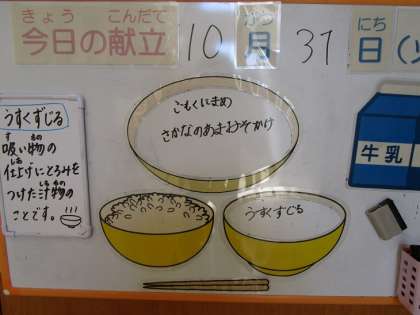 きょう こんだて
今日の献立 10月31日(火
がつ にち
うすくずじる
吸い物の
す もの
仕上げにとろみを
しあ
つけた汁物の
しるもの
ことです。
ごもくにまめ
さかなのあまみそかけ
うすくずじる
牛乳